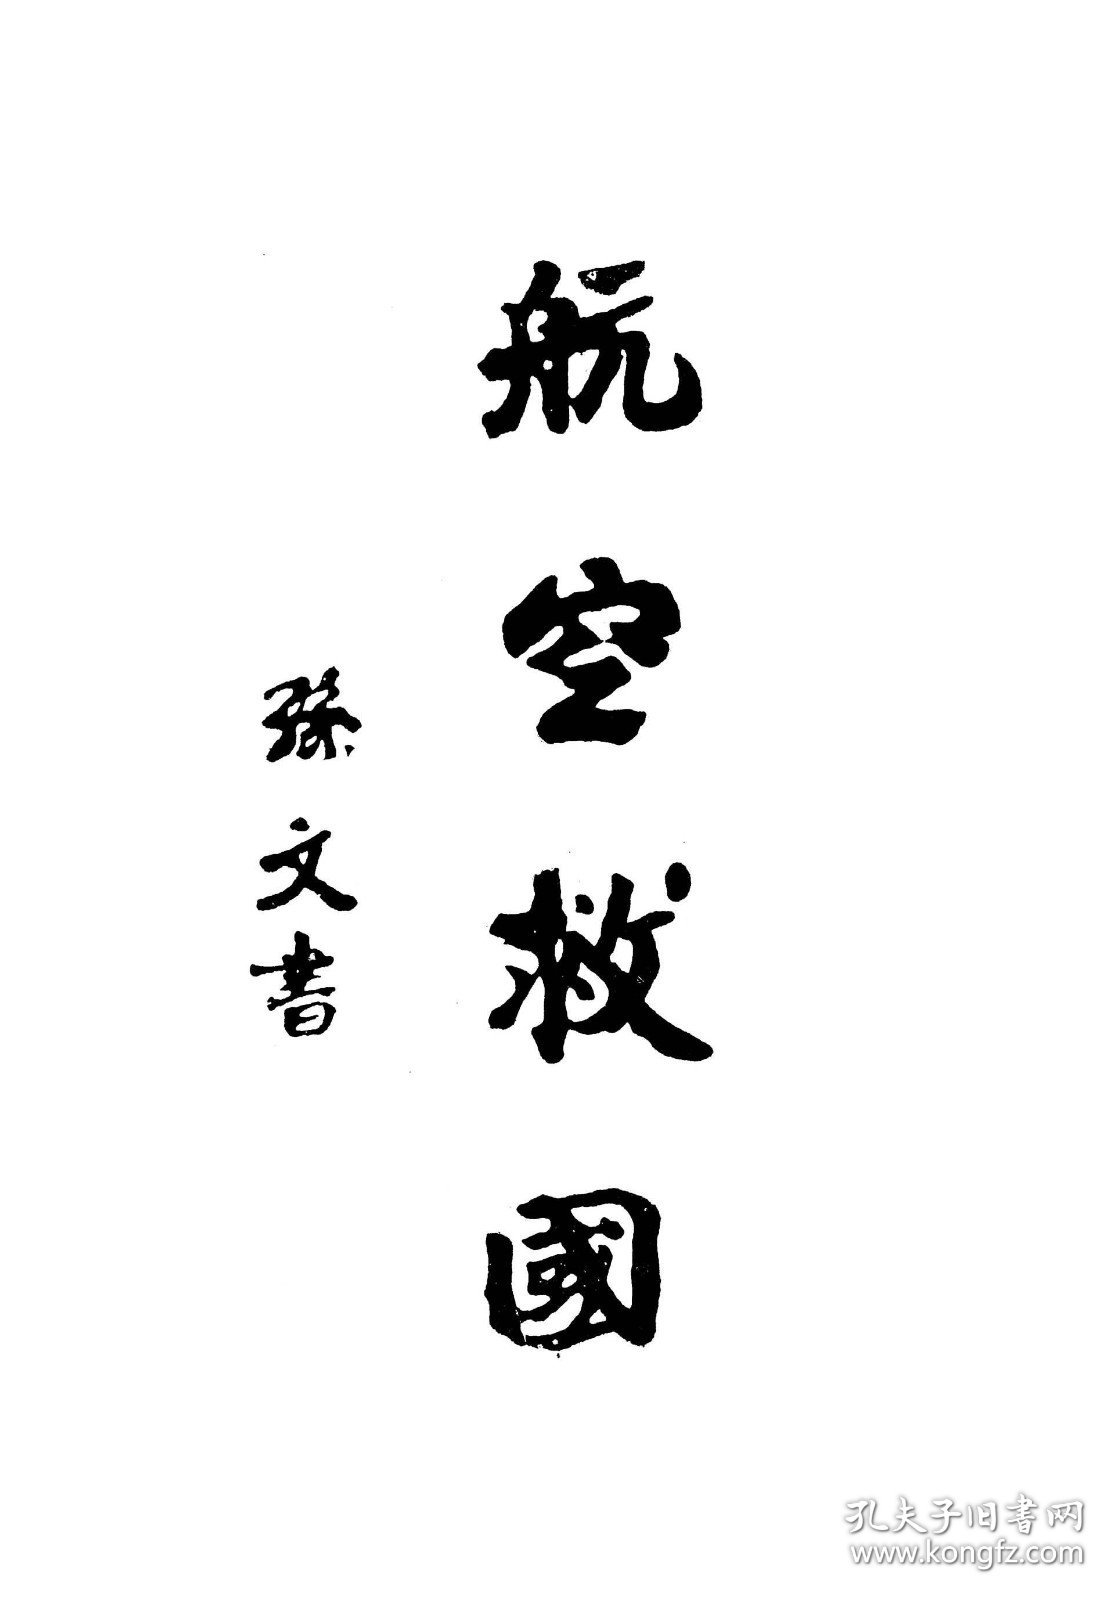 航空救國
孫文書
孔夫子旧书网
www.kongfz.com